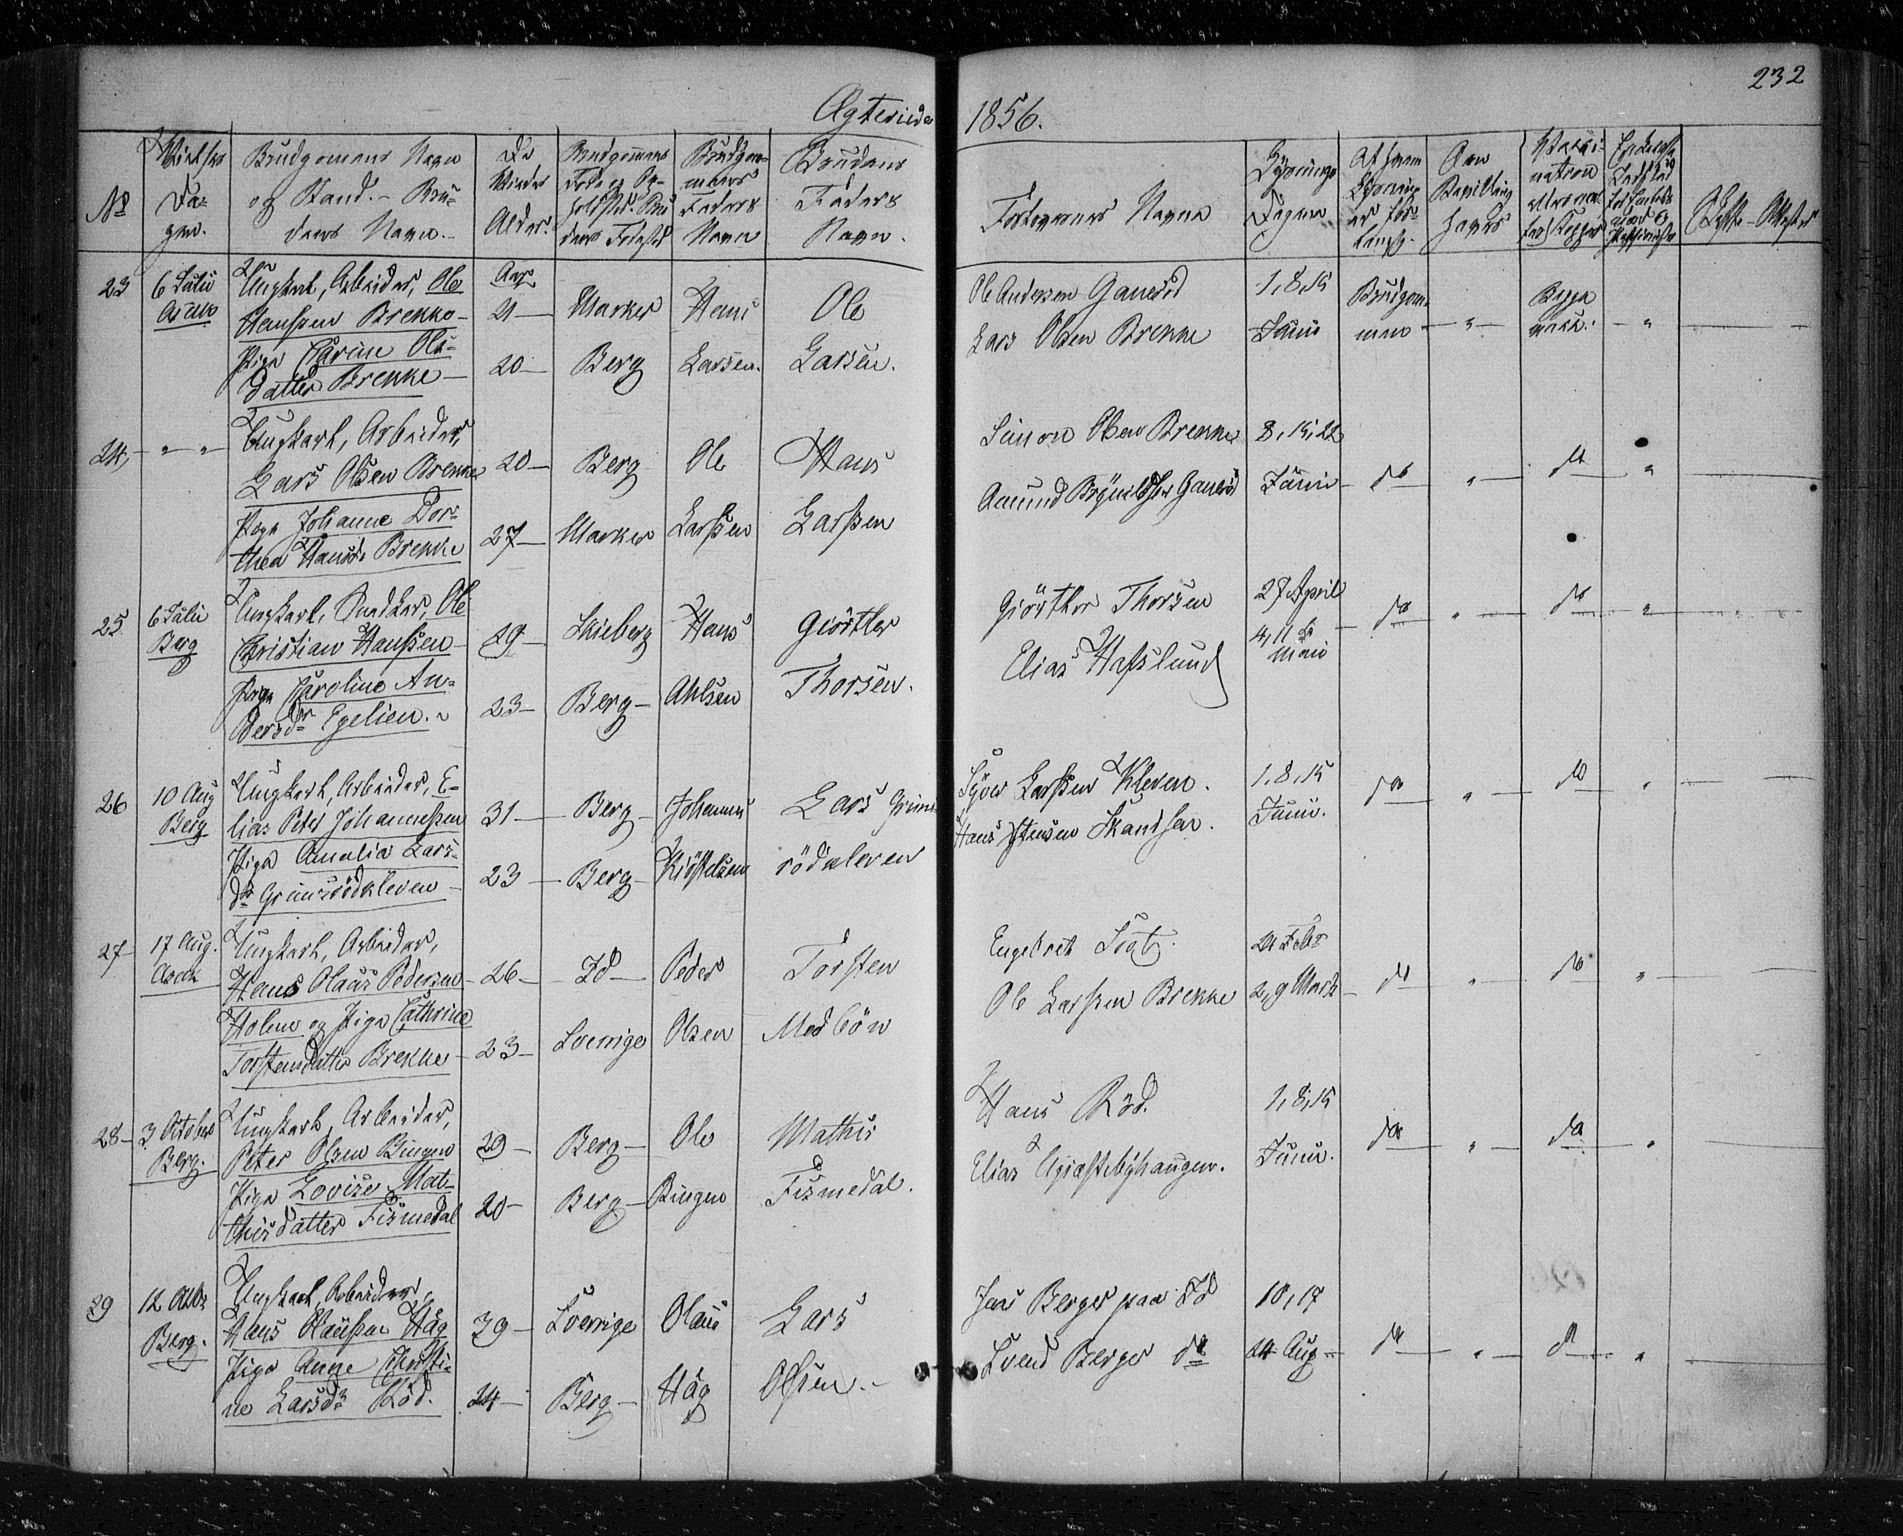 232
Ægteviede 1856.
No
Vielses
Da-
gen.
Brudgomens Navn
og Stand. - Bru-
dens Navn.
De
Viedes
Alder.
Brudgommens
Fødested
Brudgom-
mens
Faders
Navn
Brudens
Faders
Navn.
Forlovernes Navne
Lysnings
Dagene
Af hvem
Lysning
er for-
langt.
23
6 Julii
Asak
Ungkarl, Arbeider, Ole
Hanssen Brekke
Pige Karine Ols-
datter Brekke
Aar
21
20
Marker
Berg
Hans
Larsen.
Ole
Larsen.
Ole Andersen Ganeröd
Lars Olsen Brekke
1, 8, 15
Junii
Brudgom-
men
"
"
24,
" "
Ungkarl, Arbeider,
Lars Olsen Brekke
Pige Johanne Dor-
thea Hansd. Brekke
20
27
Berg
Marker
Ole
Larssen
Hans
Larssen
Simon Olsen Brekke
Amund Brynildsen Ganeröd
8, 15, 22
Junii
do
"
do
"
25
6 Julii
Berg
Ungkarl, Snedker, Ole
Christian Hanssen
Pige Karoline An-
dersdr Egelien.
29
23
Skieberg
Berg
Hans
Ahlsen
Giörtler
Thorsen.
Giörtler Thorsen
Elias Hafslund
27 April
4, 11
Maii
do
"
do
"
26
10 Aug
Berg
Ungkarl, Arbeider, E-
lias Peter Johannessen
Pige Amalia Lars-
dr Grimsrödkleven
31
23
Berg
Berg
Johannes
Kiöstelsen
Lars Grims-
rödkleven
Syver Larssen Kleven.
Hans Jensen Skandsen.
1, 8, 15
Junii.
do
"
do
"
27
17 Aug.
Asak
Ungkarl, Arbeider,
Hans Olaus Pedersen
Holme og Pige Cathrine
Torstensdatter Brekke
26
23
Id
Sverrige
Peder
Olsen
Torsten
Medbön
Engebret
Ole Larssen Brekke
24 Febr
2, 9 Marts
do
"
do
"
28
3 October
Berg.
Ungkarl, Arbeider,
Peter Olsen Bingen
Pige Lovise Mat-
thisdatter Fismedal
29
20
Berg
Berg
Ole
Bingen
Mathis
Fismedal.
Hans Röd.
Elias Giæstebyhaugen.
1, 8, 15
Junii.
do
"
do
"
29
12 Octbr
Berg.
Ungkarl, Arbeider,
Hans Olaussen Häg
Pige Anne Christi-
ne Larsdr Röd.
39
24
Sverrige
Berg
Olaus
Häg
Lars
Olssen.
Jens Berger paa Id
Svend Berger do
10, 17
24 Aug
do
"
do
"